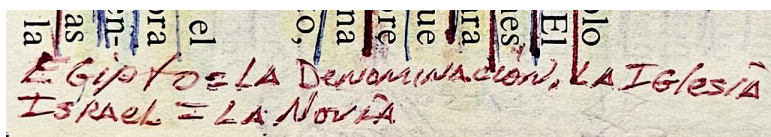 la
as
en-
ora
el
o,
na
ore
ue
ara
nes
El
olo
EGipto = LA DenominAción. LA IGlesiA
ISRAeL = LA NoviA